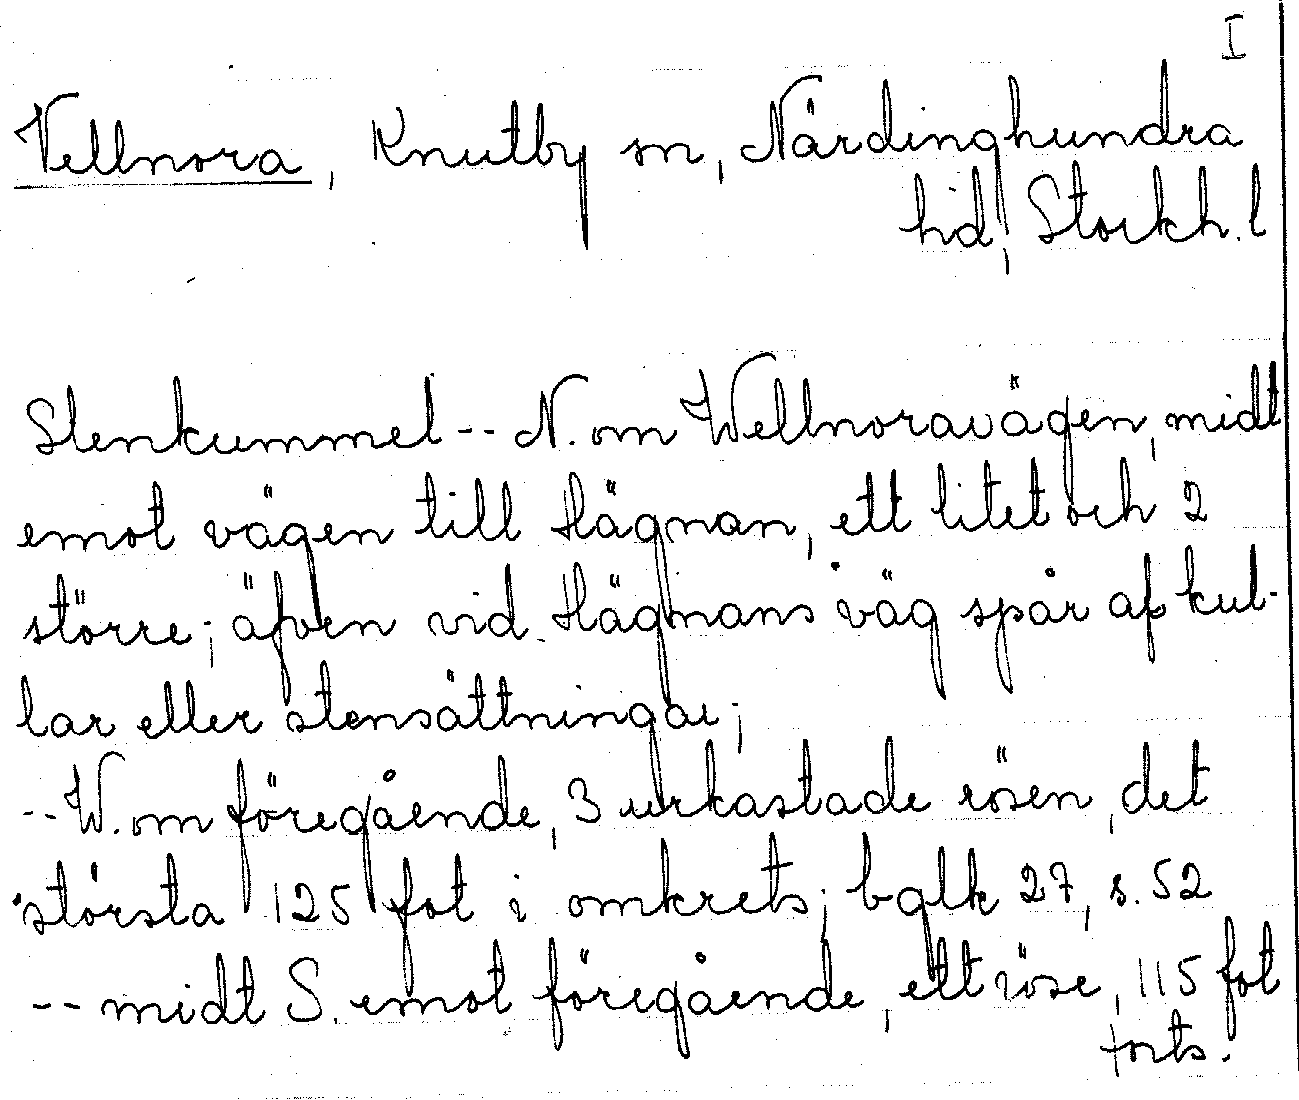 I
Vellnora, Knutby sn, Närdinghundra
hd, Stockh. l
Stenkummel -- N. om Wellnoravägen, midt
emot vägen till Hägnan, ett litet och 2
större; äfven vid Hägnans väg spår af kul-
lar eller stensättningar;
-- W. om föregående, 3 urkastade rösen, det
största 125 fot i omkrets; bglk 27, s. 52
-- midt S. emot föregående, ett röse, 115 fot
forts.